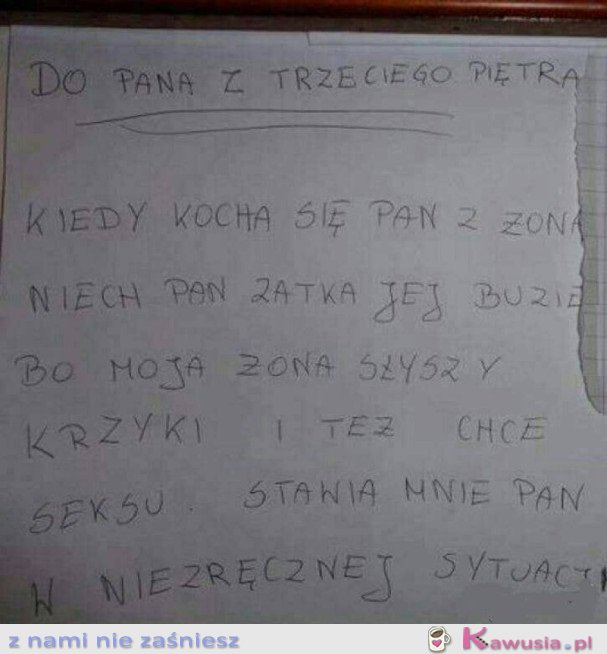 DO PANA Z TRZECIEGO PIĘTRA
KIEDY KOCHA SIĘ PAN Z ZONĄ
NIECH PAN ZATKA JEJ BUZIE
BO MOJA ZONA SŁYSZY
KRZYKI I TEZ CHCE
SEKSU. STAWIA MNIE PAN
W NIEZRĘCZNEJ SYTUACJI
z nami nie zaśniesz
Kawusia.pl